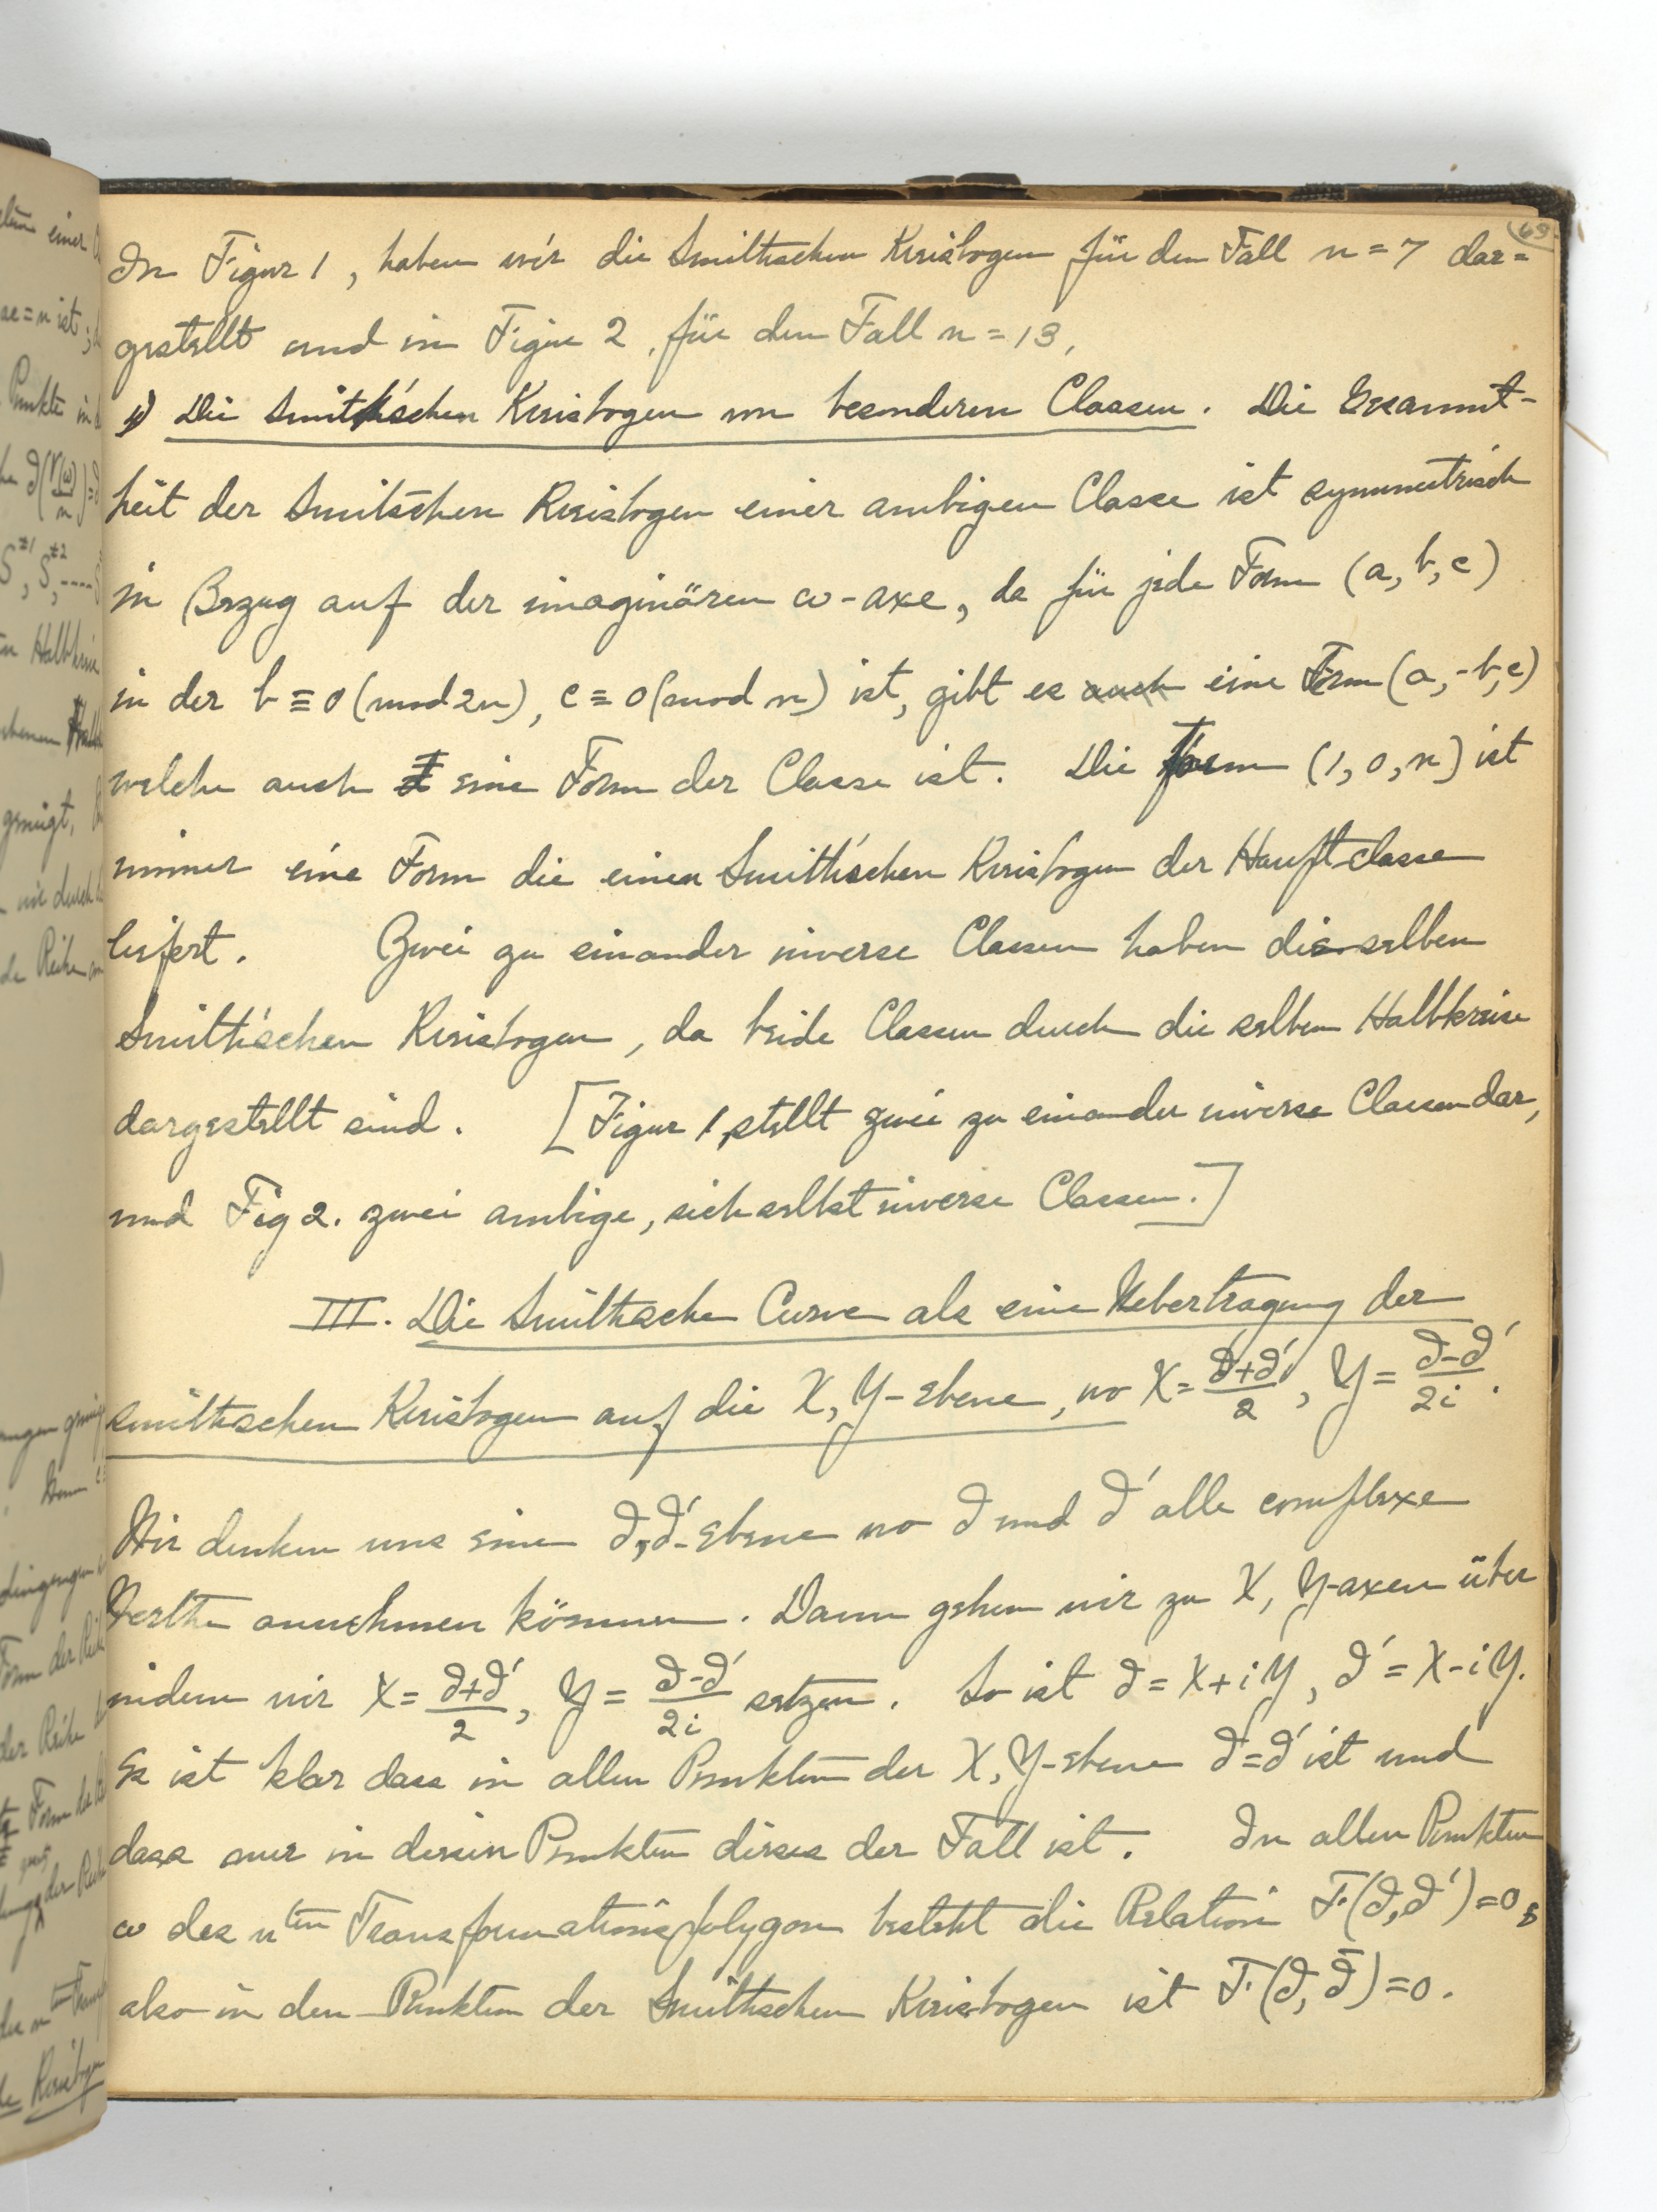 63
In Figur 1, haben wir die Smithschen Kreisbogen für den Fall n = 7 dar=
gestellt und in Figur 2, für den Fall n = 13,
Die Smith'schen Kreisbogen von besonderen Classen. Die Gesammt-
heit der Smitschen Kreisbogen einer ambigen Classe ist symmetrisch
in Bezug auf der imaginären ω-axe, da für jede Form (a, b, c)
in der b ≡ 0 (mod 2n), c ≡ 0 (mod n) ist, gibt es auch eine Form (a, -b, c)
welche auch eine Form der Classe ist. Die Form (1, 0, n) ist
immer eine Form die einen Smith'schen Kreisbogen der Hauptclasse
liefert. Zwei zu einander inverse Classen haben dieselben
Smith'schen Kreisbogen, da beide Classen durch die selben Halbkreise
dargestellt sind. [Figur 1, stellt zwei zu einander inverse Classen dar,
und Fig 2. zwei ambige, sich selbst inverse Classen.]
III. Die Smithsche Curve als eine Uebertragung der
smithschen Kreisbogen auf die X, Y-ebene, wo X = (∂+∂')/2, Y = (∂-∂')/2i.
Wir denken uns eine ∂,∂'-Ebene wo ∂ und ∂' alle complexe
Werthe annehmen können. Dann gehen wir zu X, Y-axen über
indem wir X = (∂+∂')/2, Y = (∂-∂')/2i setzen. So ist ∂ = X+iY, ∂' = X-iY.
Es ist klar dass in allen Punkten der X, Y-ebene ∂̄=∂' ist und
dass nur in diesen Punkten dieses der Fall ist. In allen Punkten
ω des n ten Transformationspolygon besteht die Relation F(∂,∂')=0,
also in den Punkten der Smithschen Kreisbogen ist F(∂, ∂̄)=0.